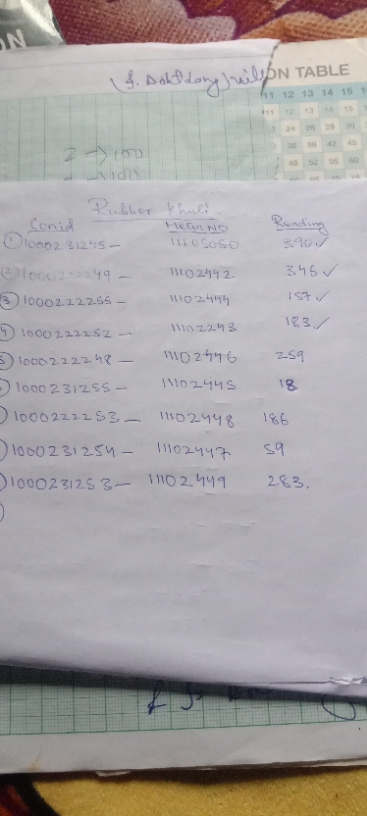 ON
ON TABLE
11 12 13 14 15
11 12 13 14 15
24 26 28 30
36 39 42 45
48 52 56 60
2 → 100
Rubber Khuli
Conid Meter NO Reading
① 1000231245 - 11105050 390 ✓
② 1000222249 - 11102442 346 ✓
③ 1000222256 - 11102444 157 ✓
④ 1000222252 - 11102243 183 ✓
⑤ 1000222248 - 11102446 259
1000231255 - 11102445 18
1000222253 - 11102448 186
1000231254 - 11102447 59
1000231253 - 11102449 283.